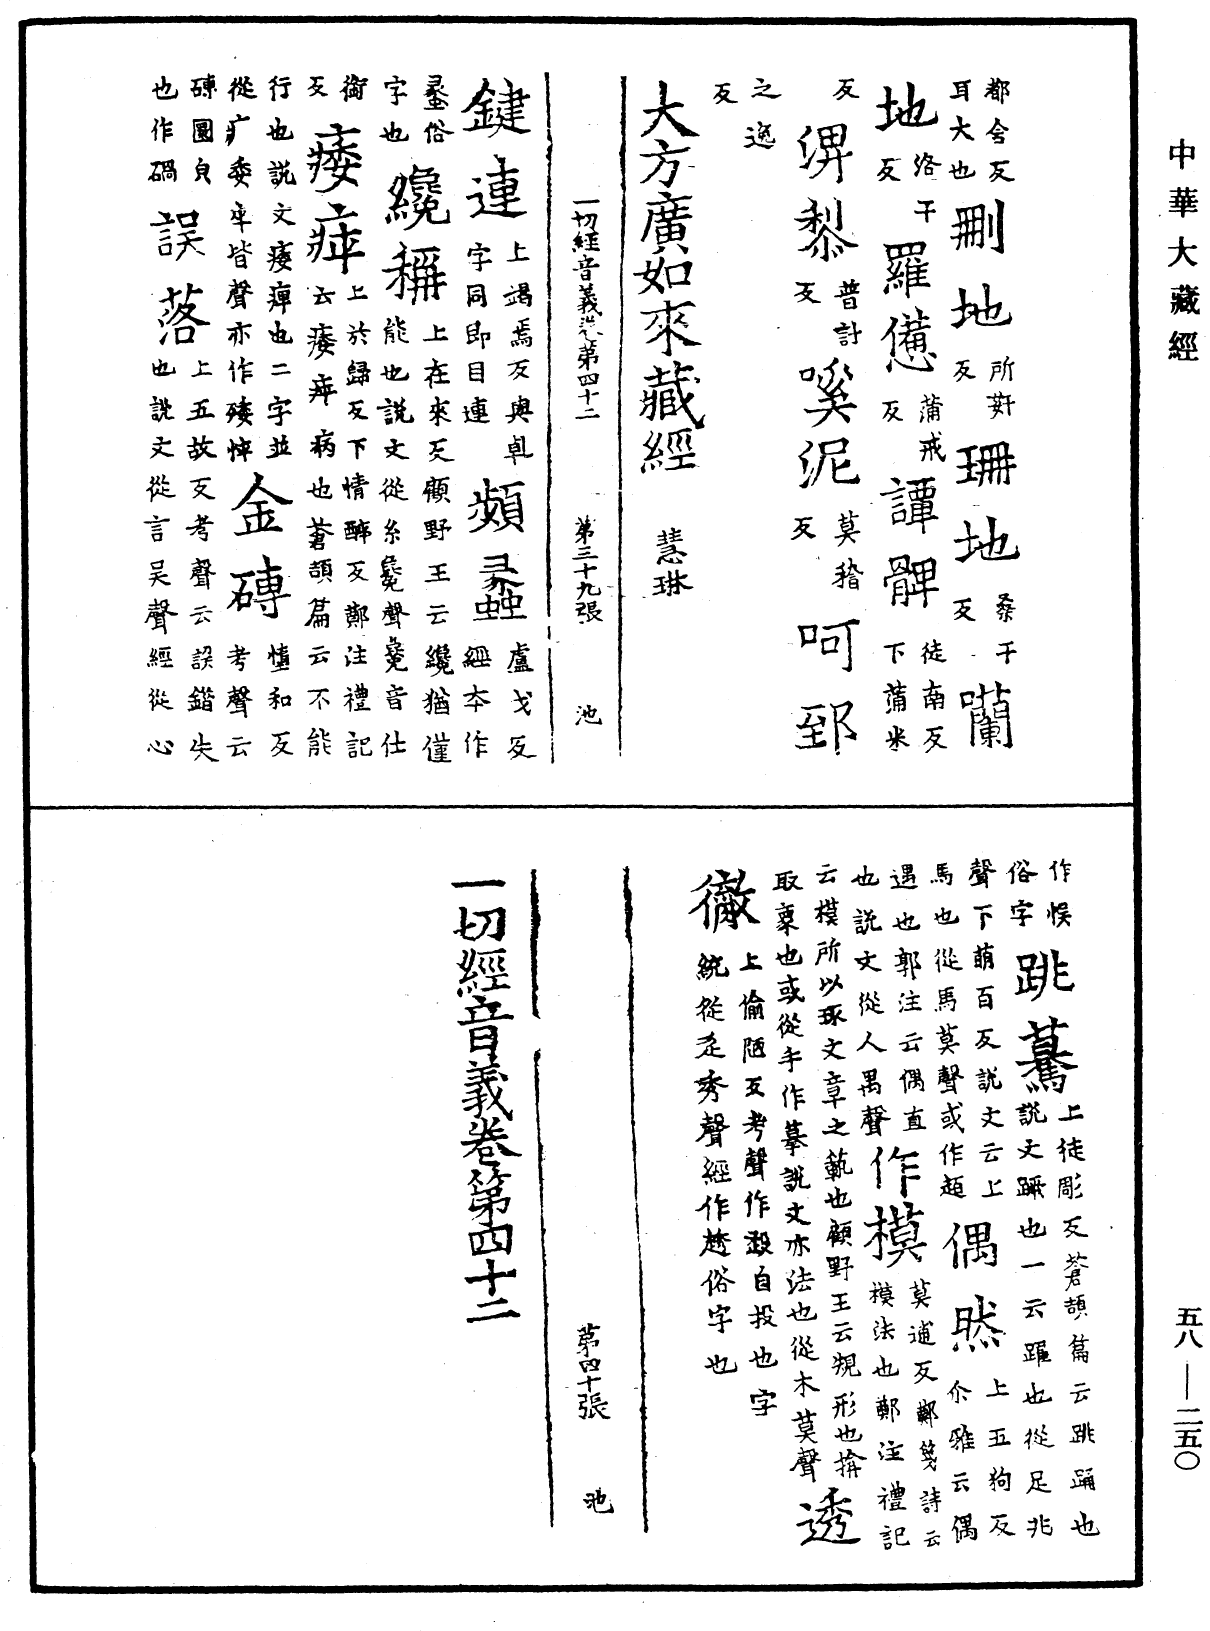 中華大藏經
都含反
耳大也刪地所姧反珊地桑干反囒
地洛干反羅憊蒲戒反譚髀徒南反下蒲米
反渒黎普計反嗘泥莫稽反呵郅
之逸反
大方廣如來藏經 慧琳
一切經音義卷第四十二 第三十九張 池
鍵連上竭焉反與乹字同即目連頻蠡盧戈反經本作
蠡俗字也纔稱上在來反顧野王云纔猶僅能也說文從糸毚聲毚音仕
銜反痿瘁上於歸反下情醉反鄭注禮記云痿瘁病也蒼頡篇云不能
行也說文痿痺也二字並從疒委卒皆聲亦作矮悴金磚慞和反考聲云
磚團負也作碢誤落上五故反考聲云誤錯失也說文從言吳聲經從心
作悞俗字跳驀上徒彫反蒼頡篇云跳踊也說文躍也一云躍也從足兆
聲下萌百反說文云上馬也從馬莫聲或作趏偶然上五狗反尒雅云偶
遇也郭注云偶直也說文從人禺聲作模莫逋反鄭箋詩云模法也鄭注禮記
云模所以琢文章之範也顧野王云規形也掩取稾也或從手作摹說文亦法也從木莫聲透
徹上偷陋反考聲作透自投也字統從辵秀聲經作趒俗字也
第四十張 池
一切經音義卷第四十二
五八——二五〇